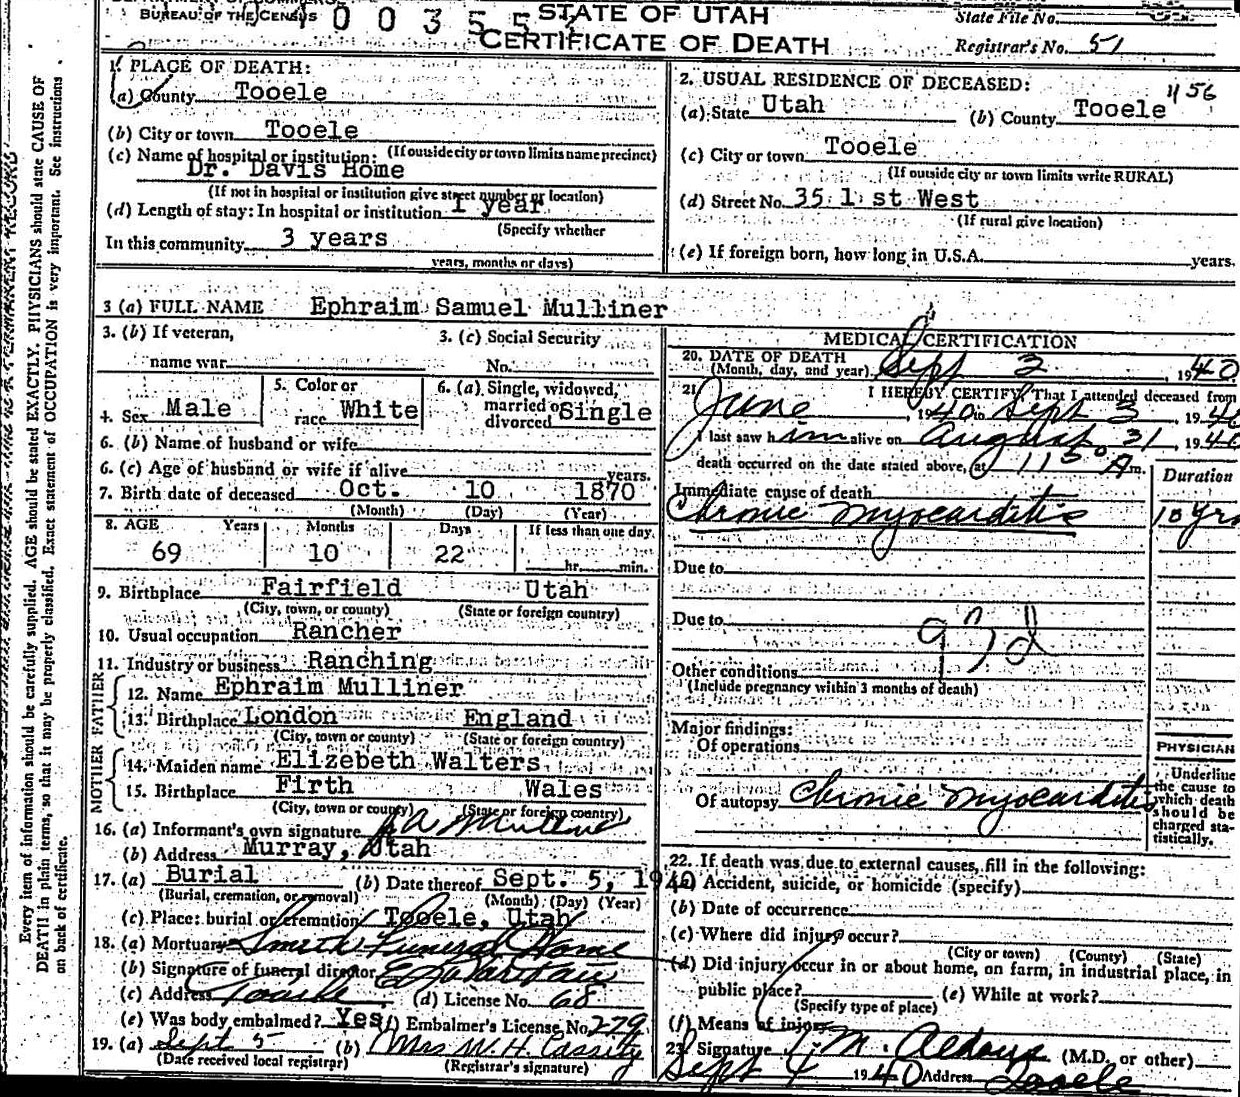 BUREAU OF THE CENSUS
STATE OF UTAH
CERTIFICATE OF DEATH
State File No.
Registrar's No. 51
Every item of information should be carefully supplied. AGE should be stated EXACTLY. PHYSICIANS should state CAUSE OF
DEATH in plain terms, so that it may be properly classified. Exact statement of OCCUPATION is very important. See instructions
on back of certificate.
1. PLACE OF DEATH:
(a) County Tooele
(b) City or town Tooele
(If outside city or town limits name precinct)
(c) Name of hospital or institution:
Dr. Davis Home
(If not in hospital or institution give street number or location)
(d) Length of stay: In hospital or institution 1 year
(Specify whether
In this community 3 years
years, months or days)
2. USUAL RESIDENCE OF DECEASED:
(a) State Utah (b) County Tooele
(c) City or town Tooele
(If outside city or town limits write RURAL)
(d) Street No. 35 1 st West
(If rural give location)
(e) If foreign born, how long in U.S.A. years.
3 (a) FULL NAME Ephraim Samuel Mulliner
3. (b) If veteran, 3. (c) Social Security
name war No.
4. Sex Male 5. Color or race White 6. (a) Single, widowed, married or divorced Single
6. (b) Name of husband or wife
6. (c) Age of husband or wife if alive years.
7. Birth date of deceased Oct. 10 1870
(Month) (Day) (Year)
8. AGE Years Months Days If less than one day
69 10 22 hr. min.
9. Birthplace Fairfield Utah
(City, town, or county) (State or foreign country)
10. Usual occupation Rancher
11. Industry or business Ranching
FATHER
12. Name Ephraim Mulliner
13. Birthplace London England
(City, town or county) (State or foreign country)
MOTHER
14. Maiden name Elizebeth Walters
15. Birthplace Firth Wales
(City, town or county) (State or foreign country)
16. (a) Informant's own signature Mulliner
(b) Address Murray, Utah
17. (a) Burial (b) Date thereof Sept. 5, 1940
(Burial, cremation, or removal) (Month) (Day) (Year)
(c) Place: burial or cremation Tooele, Utah
18. (a) Mortuary Smith Funeral Home
(b) Signature of funeral director
(c) Address Tooele (d) License No. 68
(e) Was body embalmed? Yes (f) Embalmer's License No. 279
19. (a) Sept 5 (b) Mrs W. H. Cassity
(Date received local registrar) (Registrar's signature)
MEDICAL CERTIFICATION
20. DATE OF DEATH
(Month, day, and year) Sept 3, 1940
21. I HEREBY CERTIFY, That I attended deceased from
June 1940 to Sept 3 1940
I last saw him alive on August 31, 1940
death occurred on the date stated above, at 1150 A m.
Immediate cause of death Duration
Chronic myocarditis 10 yrs
Due to
Due to
93d
Other conditions
(Include pregnancy within 3 months of death)
Major findings:
Of operations
Of autopsy Chronic myocarditis
PHYSICIAN
Underline
the cause to
which death
should be
charged sta-
tistically.
22. If death was due to external causes, fill in the following:
(a) Accident, suicide, or homicide (specify)
(b) Date of occurrence
(c) Where did injury occur?
(City or town) (County) (State)
(d) Did injury occur in or about home, on farm, in industrial place, in
public place? (e) While at work?
(Specify type of place)
(f) Means of injury
23. Signature M. Aldous (M.D. or other)
Sept 4 1940 Address Tooele